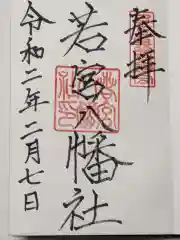 奉拝
若宮八幡社
令和二年二月七日